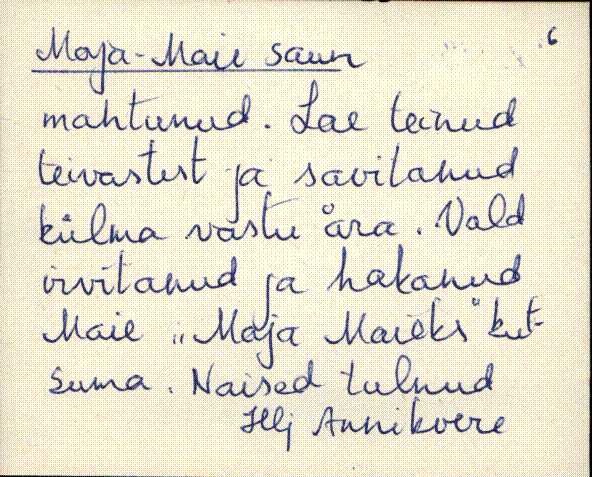 6
Maja-Maie saun
mahtunud. Lae teinud
teivastest ja savitanud
külma vastu ära. Vald
irvitanud ja hakanud
Maie „Maja Maieks" kut-
suma. Naised tulnud
Hlj Annikvere